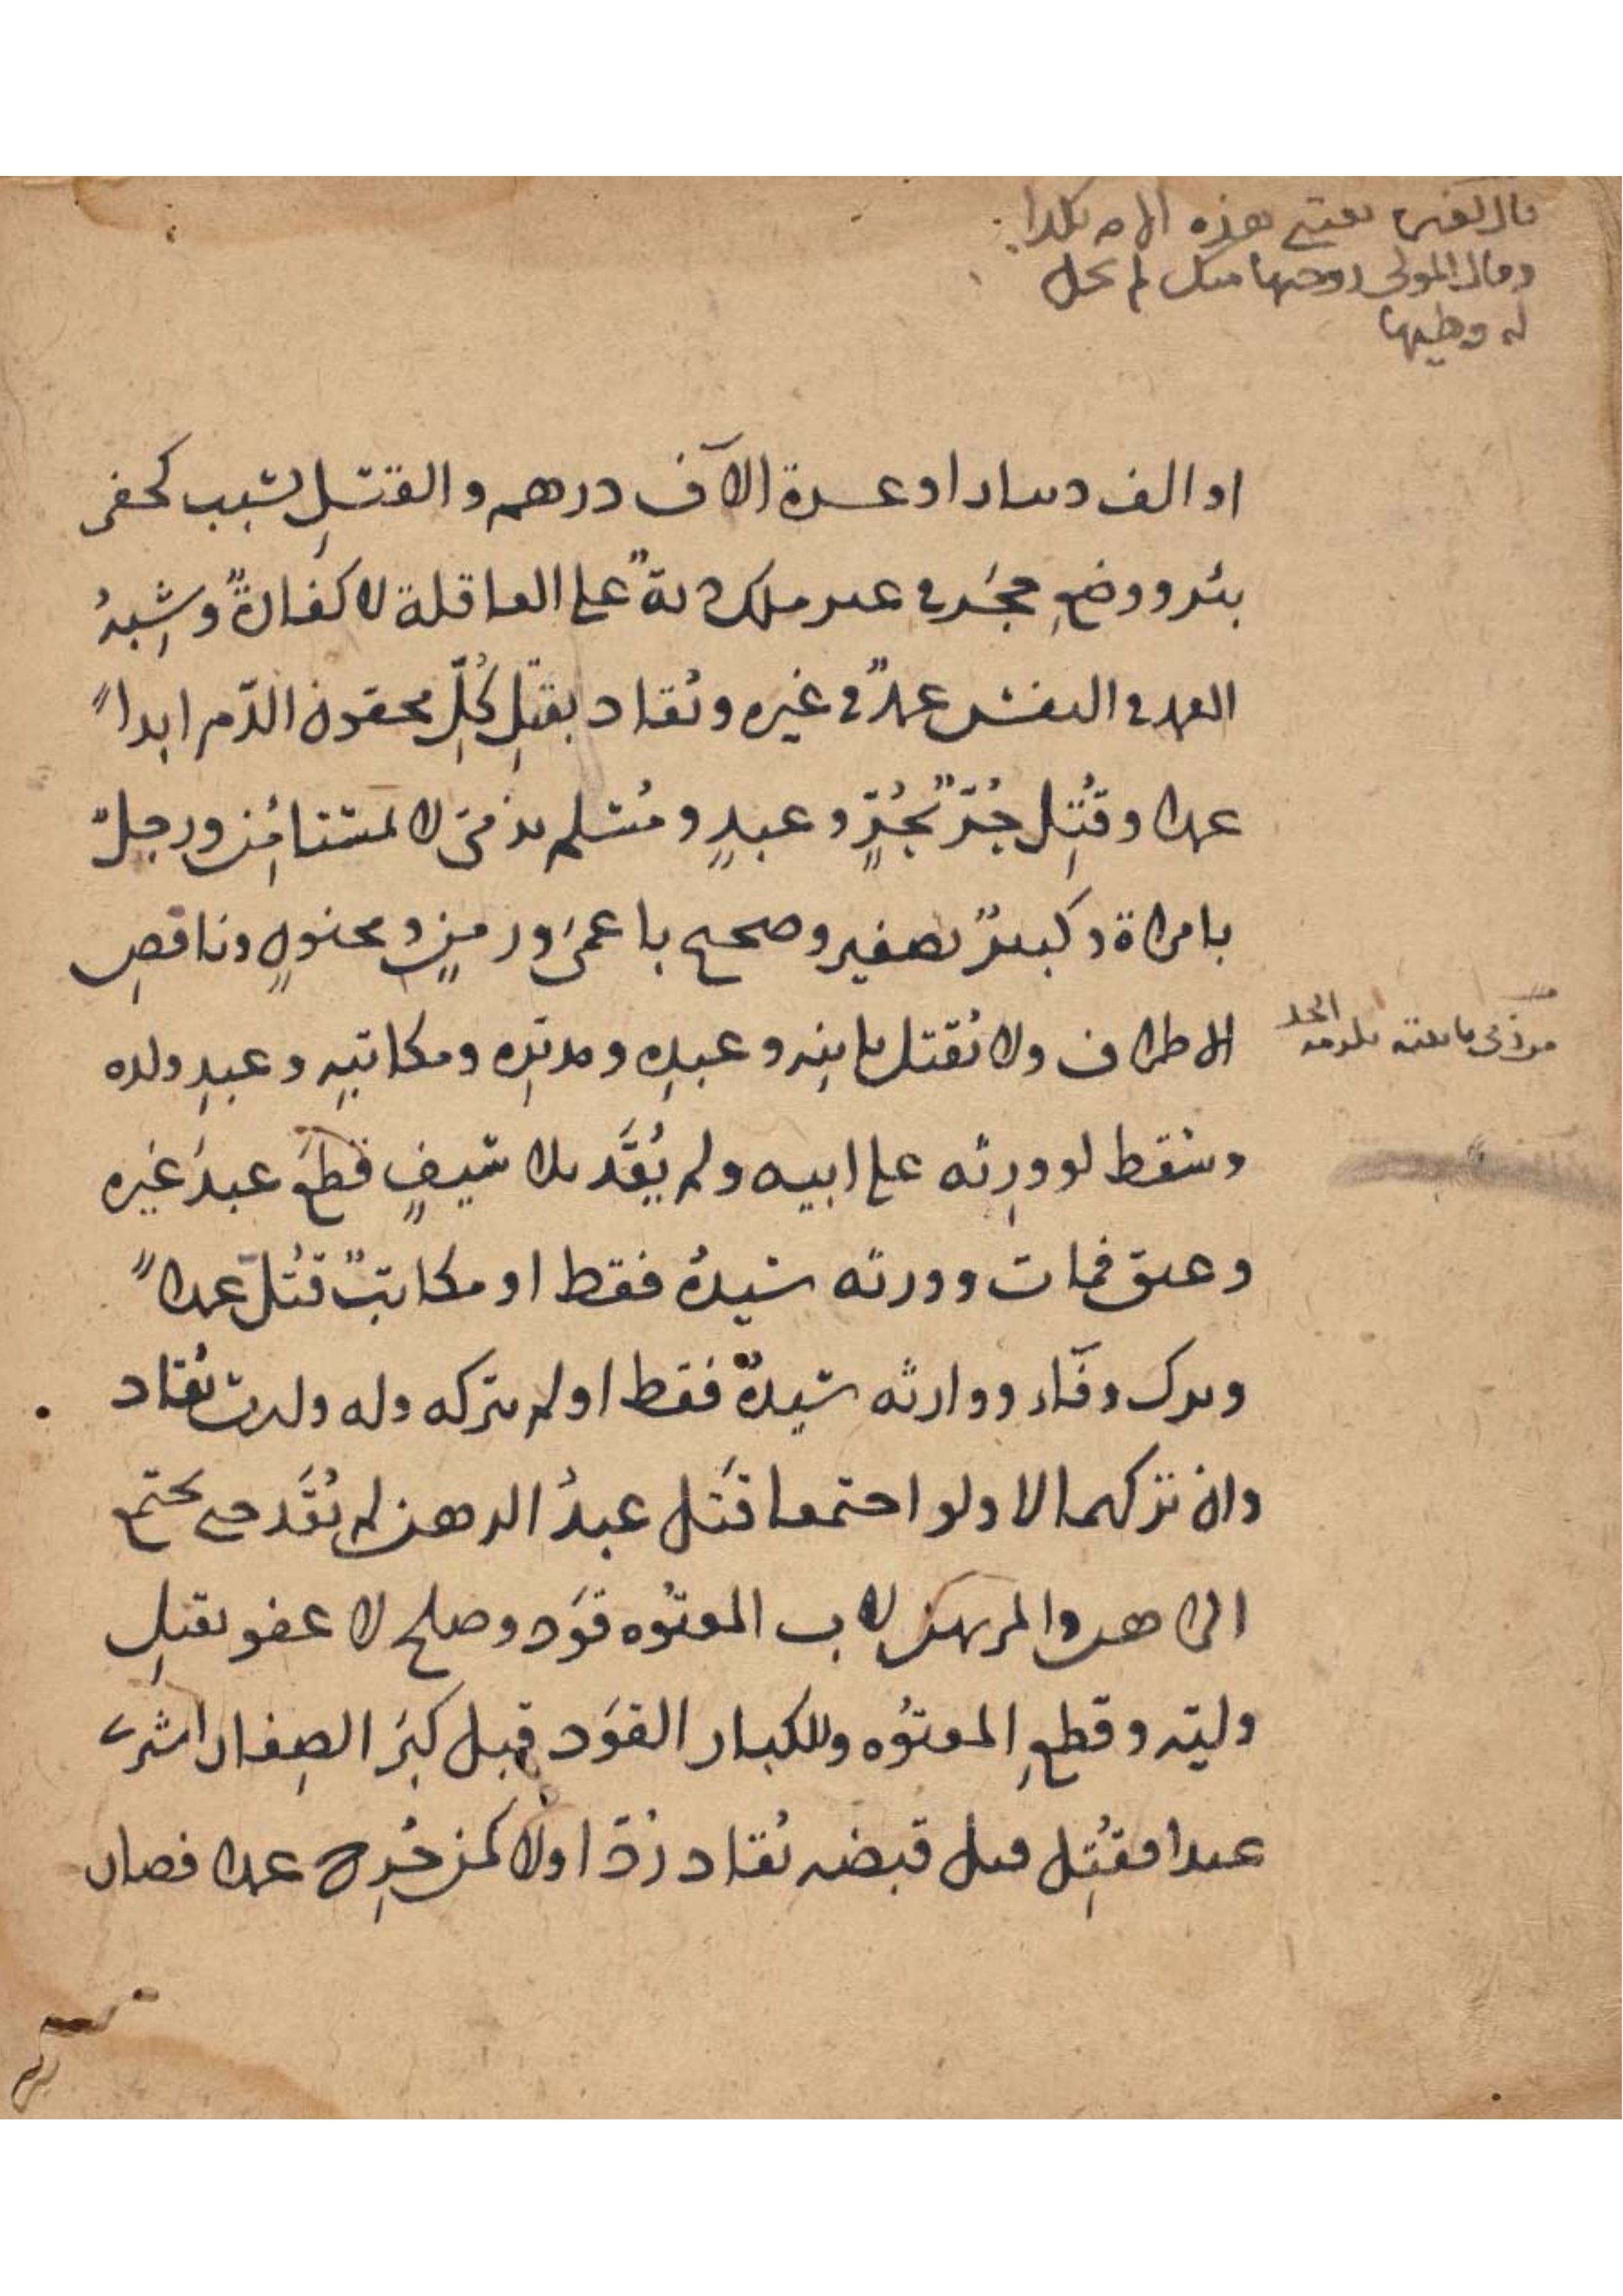 قال لغيره بعتني هذه الامة بكذا
وقال المولى زوجتها منك لم يحل
له وطيها
او الف دينار او عشرة الآف درهم والقتلِ بسبب كحفر
بئر ووضعِ حجَر في غير ملك دية على العاقلة لا كفارةً وشبهُ
العمد في النفس عمدٌ في غيره ويُقاد بقتلِ كُلِّ محقون الدّم ابداً
عمدا وقُتِل حُرّ بحُرٍّ وعبدٍ ومُسلم بذمّي لا لمستامُن ورجلٌ
بامراة وكبيرٌ بصغير وصحيح باعمى وزمِنٍ ومجنونٍ وناقصِ
الاطراف ولا يُقتل بابنِه وعبدِه ومدبّرِه ومكاتبِه وعبدِ ولده
من ذمي الحد
وسقط لو ورثه على ابيه ولم يُقَد بلا سيفٍ قطعَ عبدَ غيره
وعتق فمات وورثه سيدهُ فقط او مكاتبٌ قُتل عمداً
وترك وفَاء ووارثه سيدهُ فقط او لم يتركه وله ولدت يُقاد
وان تركهما لا ولو اجتمعا قتَل عبدُ الرهن لم يُقَد حتى يجتمع
الراهن والمرتهن لاب المعتوُه قوَد وصلح لا عفو بقتلِ
وليّه وقطعِ المعتوُه وللكبار القوَد قبل كبَر الصِغار اشترى
عبدا فقُتِل قبل قبضه يُقاد رُدّ اولا كمن جُرِح عمدا فصار